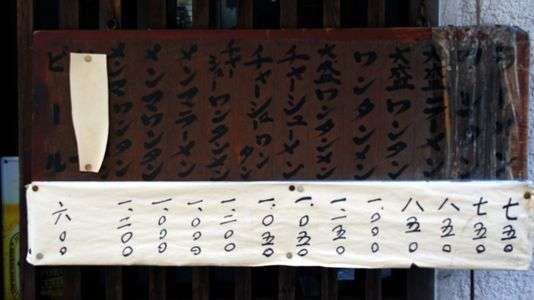 ラーメン 七五〇
ワンタン 七五〇
大盛ラーメン 八五〇
大盛ワンタン 八五〇
ワンタンメン 一、〇〇〇
大盛ワンタンメン 一、一五〇
チャーシューメン 一、〇五〇
チャーシューワンタン 一、〇五〇
チャーシューワンタンメン 一、二〇〇
メンマラーメン 一、〇〇〇
メンマワンタン 一、〇〇〇
メンマワンタンメン 一、二〇〇
ビール 六〇〇